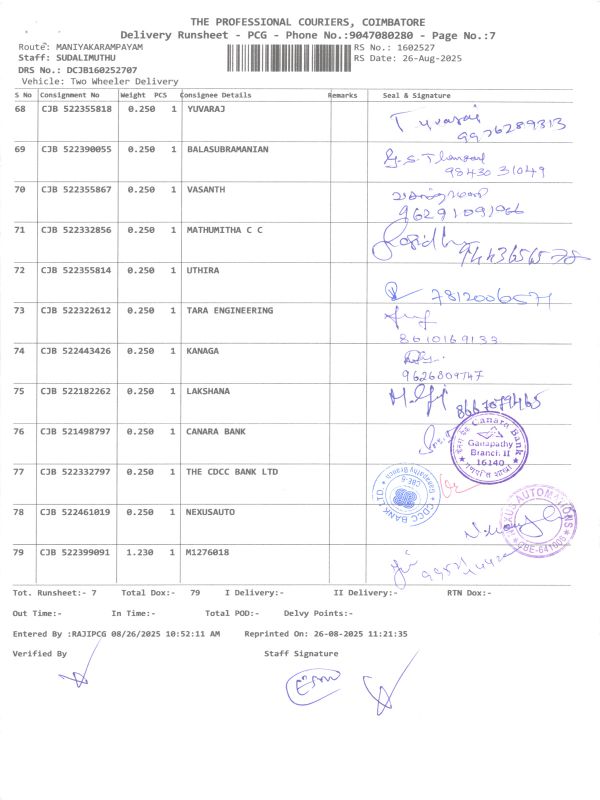 THE PROFESSIONAL COURIERS, COIMBATORE
Delivery Runsheet - PCG - Phone No.:9047080280 - Page No.:7
Route: MANIYAKARAMPAYAM RS No.: 1602527
Staff: SUDALIMUTHU RS Date: 26-Aug-2025
DRS No.: DCJB160252707
Vehicle: Two Wheeler Delivery
S No Consignment No Weight PCS Consignee Details Remarks Seal & Signature
68 CJB 522355818 0.250 1 YUVARAJ
9976289313
69 CJB 522390055 0.250 1 BALASUBRAMANIAN
98430 31049
70 CJB 522355867 0.250 1 VASANTH
96291091066
71 CJB 522332856 0.250 1 MATHUMITHA C C
72 CJB 522355814 0.250 1 UTHIRA
7812006571
73 CJB 522322612 0.250 1 TARA ENGINEERING
8610169133
74 CJB 522443426 0.250 1 KANAGA
9626809747
75 CJB 522182262 0.250 1 LAKSHANA
8667079465
76 CJB 521498797 0.250 1 CANARA BANK
Canara Bank
Ganapathy
Branch II
16140
77 CJB 522332797 0.250 1 THE CDCC BANK LTD
CDCC BANK LTD.
Ganapathy Branch
CBE-6
78 CJB 522461019 0.250 1 NEXUSAUTO
NEXUS AUTOMATIONS
CBE-641006
79 CJB 522399091 1.230 1 M1276018
Tot. Runsheet:- 7 Total Dox:- 79 I Delivery:- II Delivery:- RTN Dox:-
Out Time:- In Time:- Total POD:- Delvy Points:-
Entered By :RAJIPCG 08/26/2025 10:52:11 AM Reprinted On: 26-08-2025 11:21:35
Verified By Staff Signature